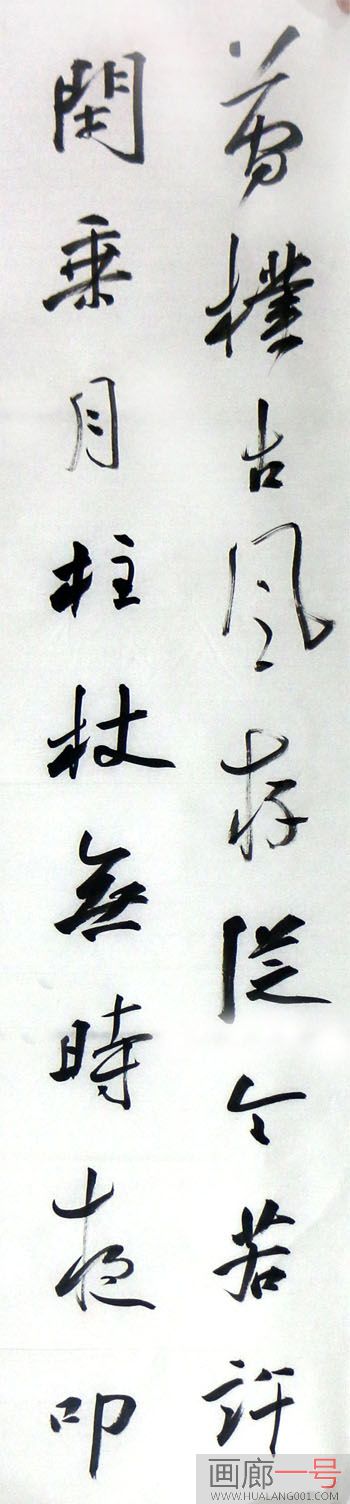 簡樸古風存從今若許
閑乘月柱杖無時夜叩
画廊一号
WWW.HUALANG001.COM